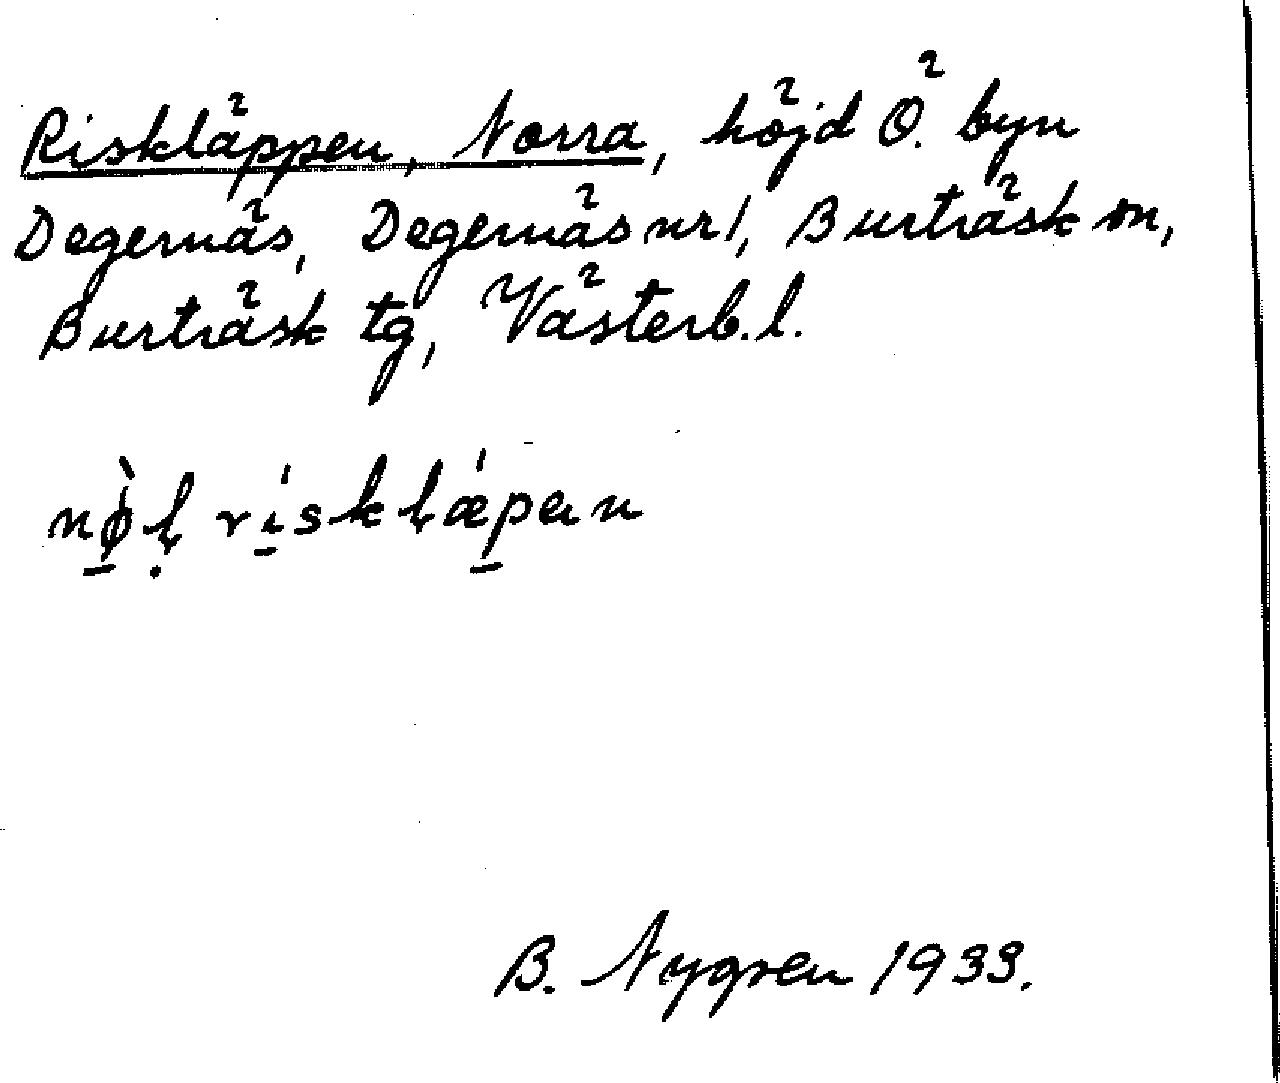 Riskläppen, Norra, höjd Ö. byn
Degernäs, Degernäs nr 1, Burträsk sn,
Burträsk tg, Västerb. l.
nø̀ḷ rískḷǽpen
B. Nygren 1933.